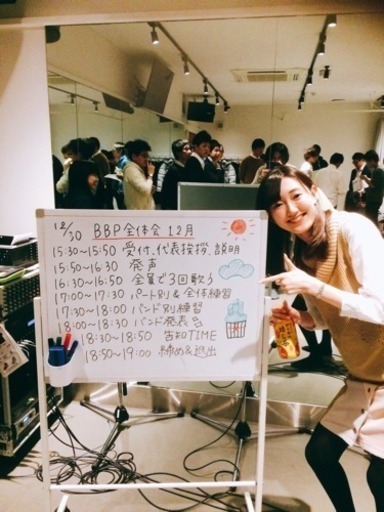 12/30 BBP全体会 12月
15:30〜15:50 受付、代表挨拶、説明
15:50〜16:30 発声
16:30〜16:50 全員で3回歌う
17:00〜17:30 パート別&全体練習
17:30〜18:00 バンド別練習
18:00〜18:30 バンド発表
18:30〜18:50 告知TIME
18:50〜19:00 締め&退出